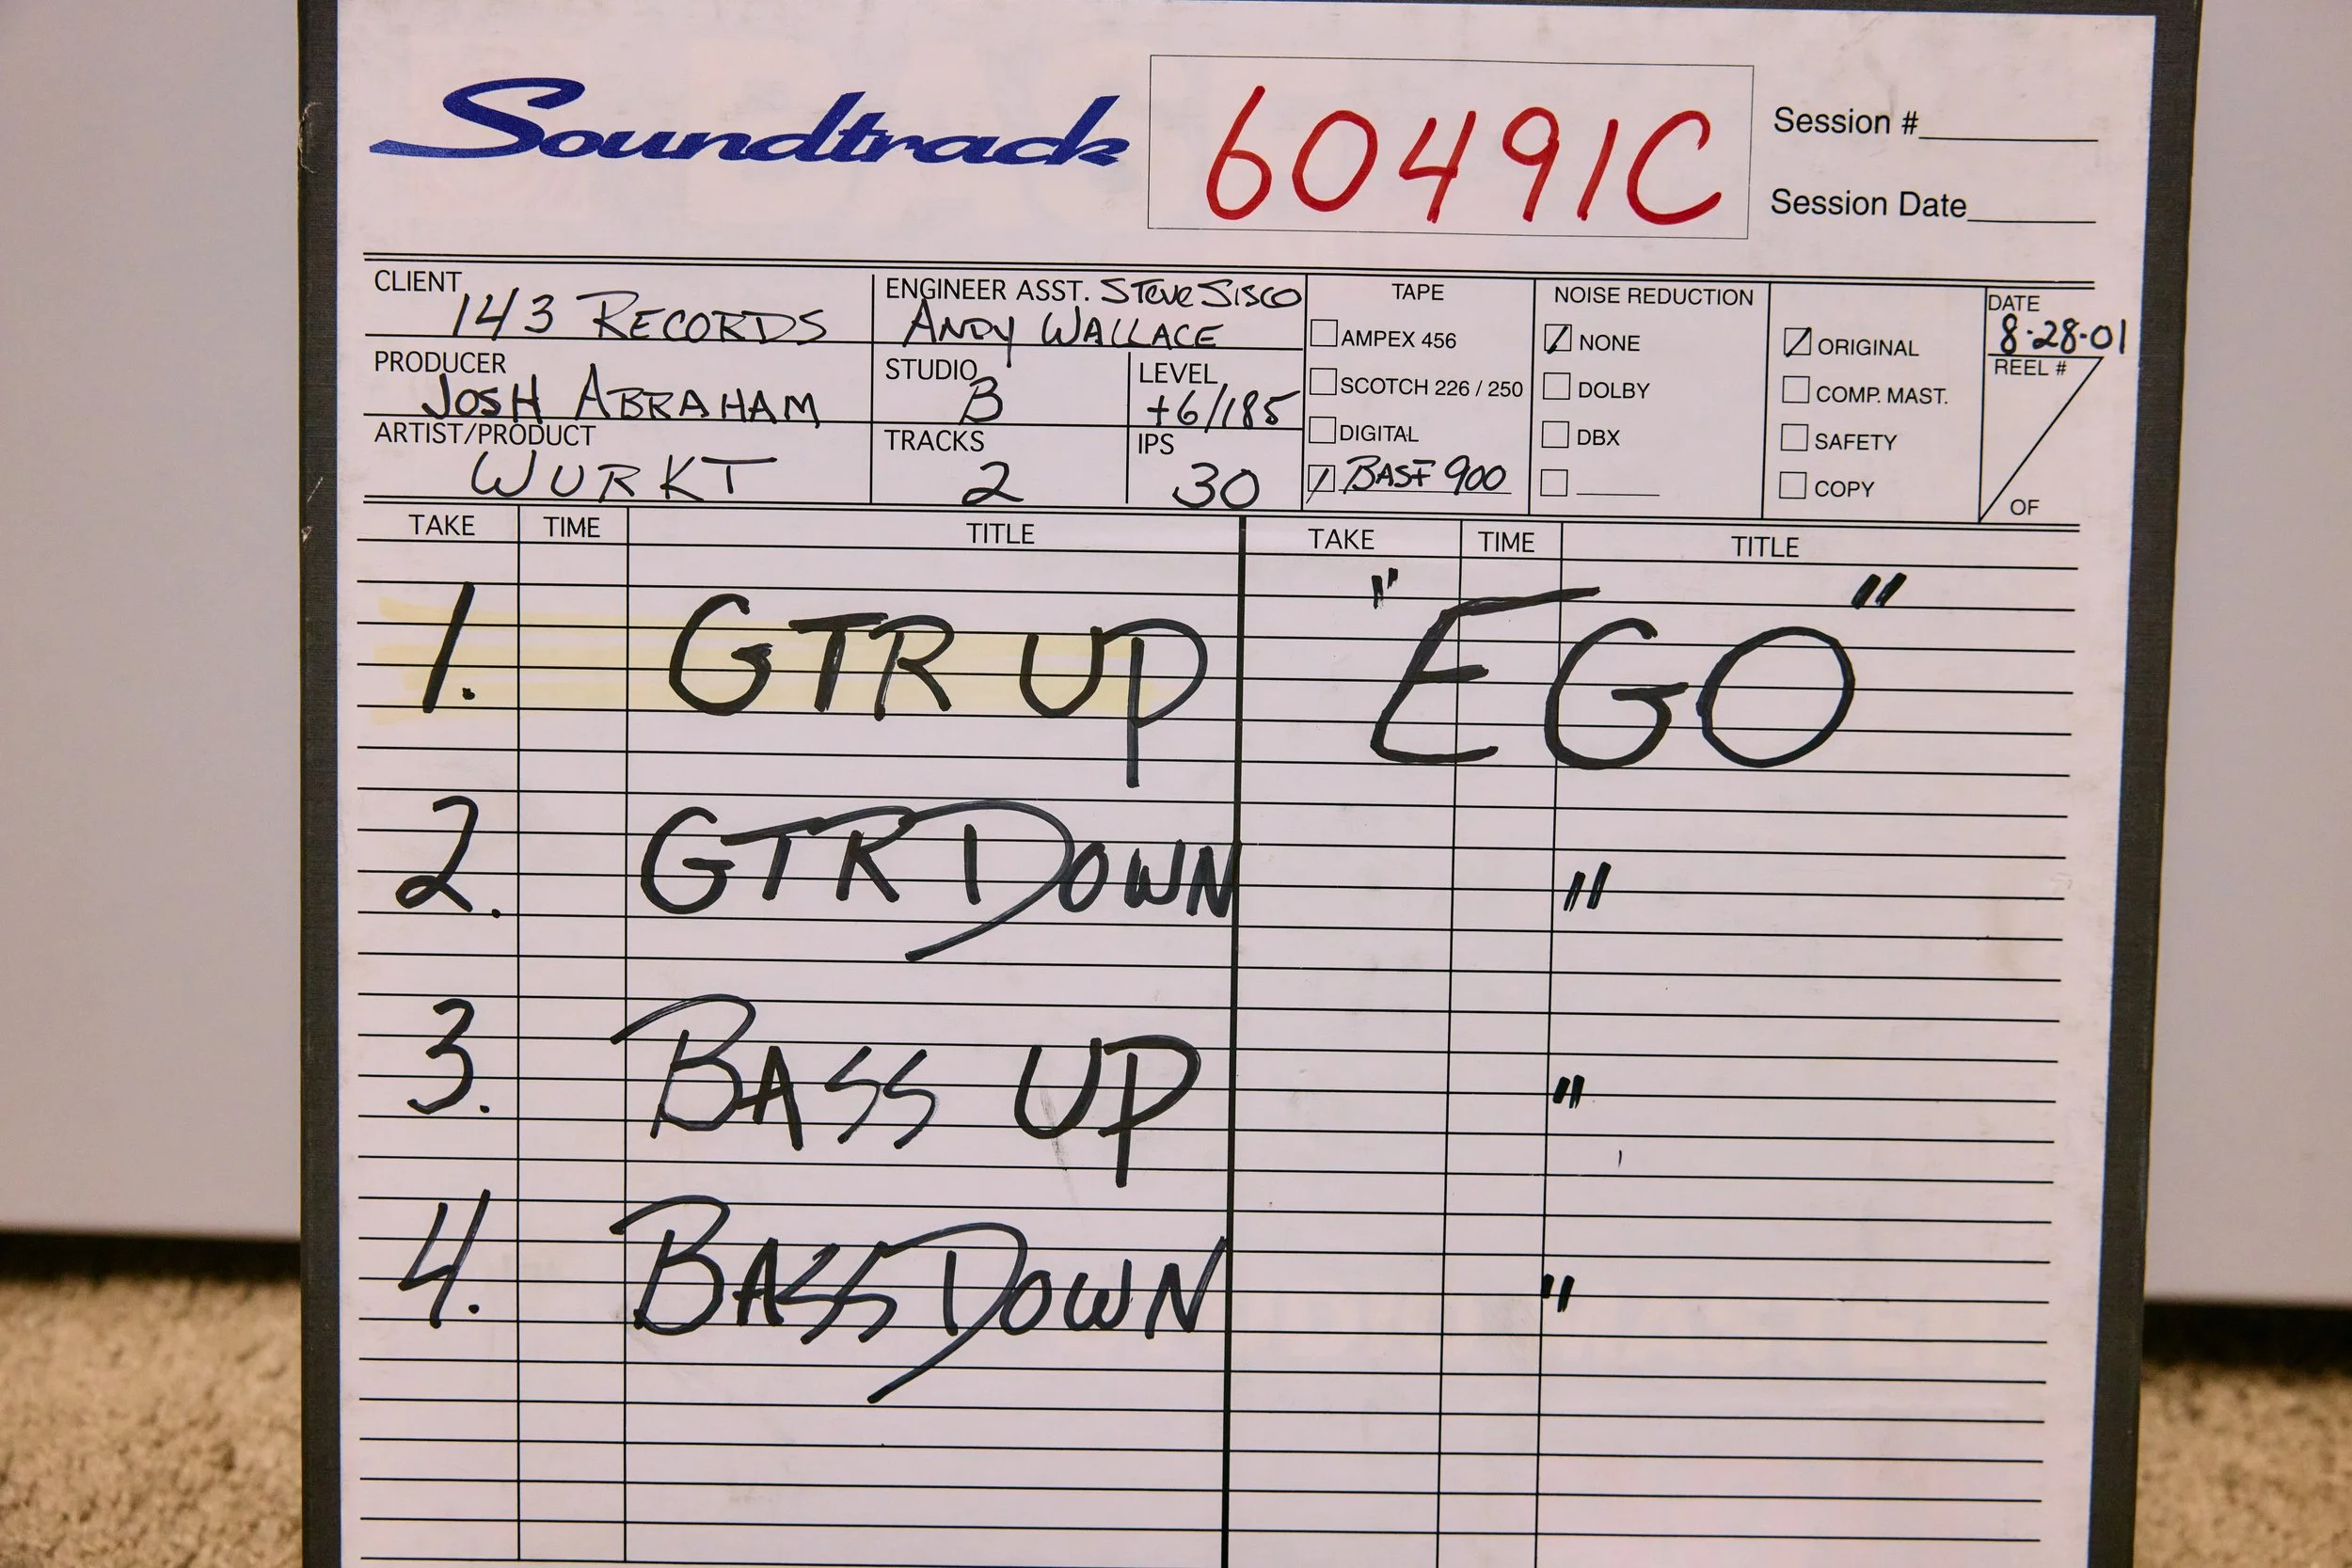 Soundtrack
60491C
Session #
Session Date
CLIENT 143 RECORDS
ENGINEER ASST. STEVE SISCO
ANDY WALLACE
PRODUCER JOSH ABRAHAM
STUDIO B
LEVEL +6/185
ARTIST/PRODUCT WURKT
TRACKS 2
IPS 30
TAPE
AMPEX 456
SCOTCH 226 / 250
DIGITAL
BASF 900
NOISE REDUCTION
NONE
DOLBY
DBX
ORIGINAL
COMP. MAST.
SAFETY
COPY
DATE 8-28-01
REEL #
OF
TAKE TIME TITLE TAKE TIME TITLE
1. GTR UP "EGO"
2. GTR DOWN "
3. BASS UP "
4. BASS DOWN "